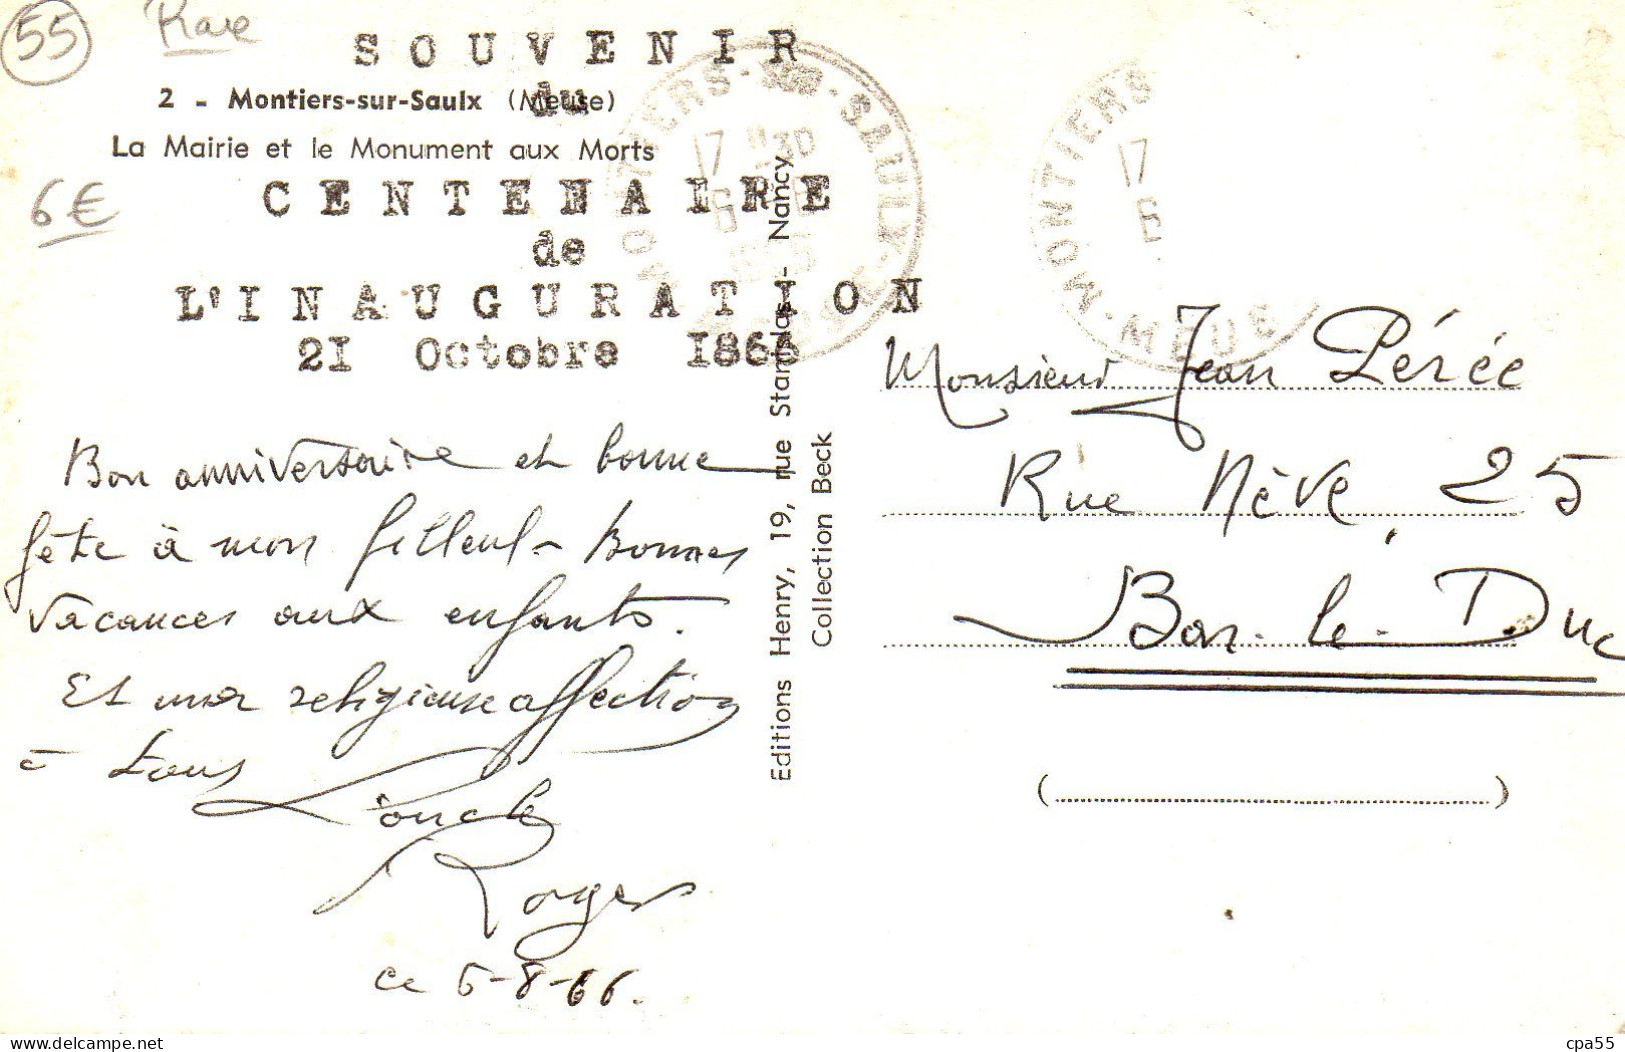 55
Rare
SOUVENIR
du
2 - Montiers-sur-Saulx (Meuse)
La Mairie et le Monument aux Morts
6€
CENTENAIRE
de
L'INAUGURATION
21 Octobre 1866
Bon anniversaire et bonne
fête à mon filleul - Bonnes
vacances aux enfants.
Et mon religieuse affection
à tous
L'oncle
Roger
ce 5-8-66.
Editions Henry, 19, rue Stanislas - Nancy
Collection Beck
MONTIERS-SUR-SAULX
17 H 30
6
MONTIERS
17
6
MEUSE
Monsieur Jean Pérée
Rue Nève, 25
Bar-le-Duc
(                    )
www.delcampe.net
cpa55